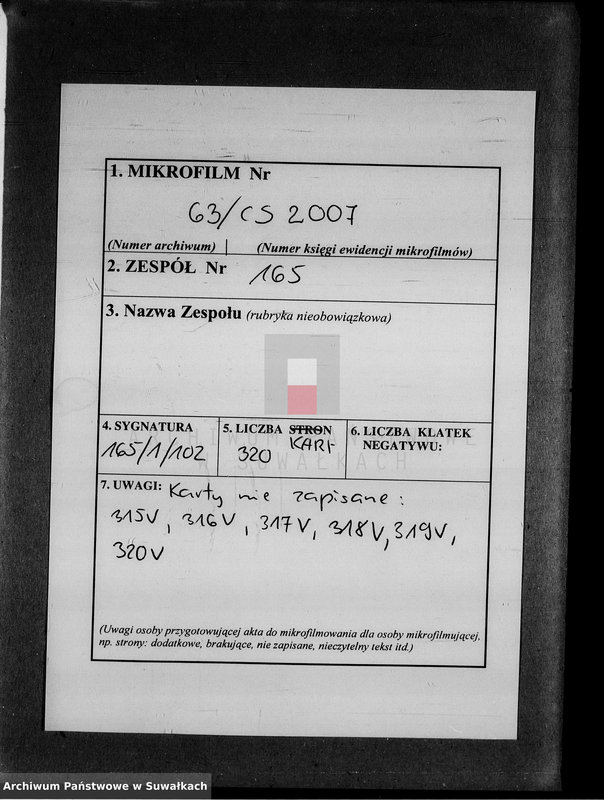 1. MIKROFILM Nr
63/CS 2007
(Numer archiwum) (Numer księgi ewidencji mikrofilmów)
2. ZESPÓŁ Nr 165
3. Nazwa Zespołu (rubryka nieobowiązkowa)
4. SYGNATURA
165/1/102
5. LICZBA STRON
KART
320
6. LICZBA KLATEK
NEGATYWU:
ARCHIWUM PAŃSTWOWE
W SUWAŁKACH
7. UWAGI: Karty nie zapisane:
315V, 316V, 317V, 318V, 319V,
320V
(Uwagi osoby przygotowującej akta do mikrofilmowania dla osoby mikrofilmującej,
np. strony: dodatkowe, brakujące, nie zapisane, nieczytelny tekst itd.)
Archiwum Państwowe w Suwałkach